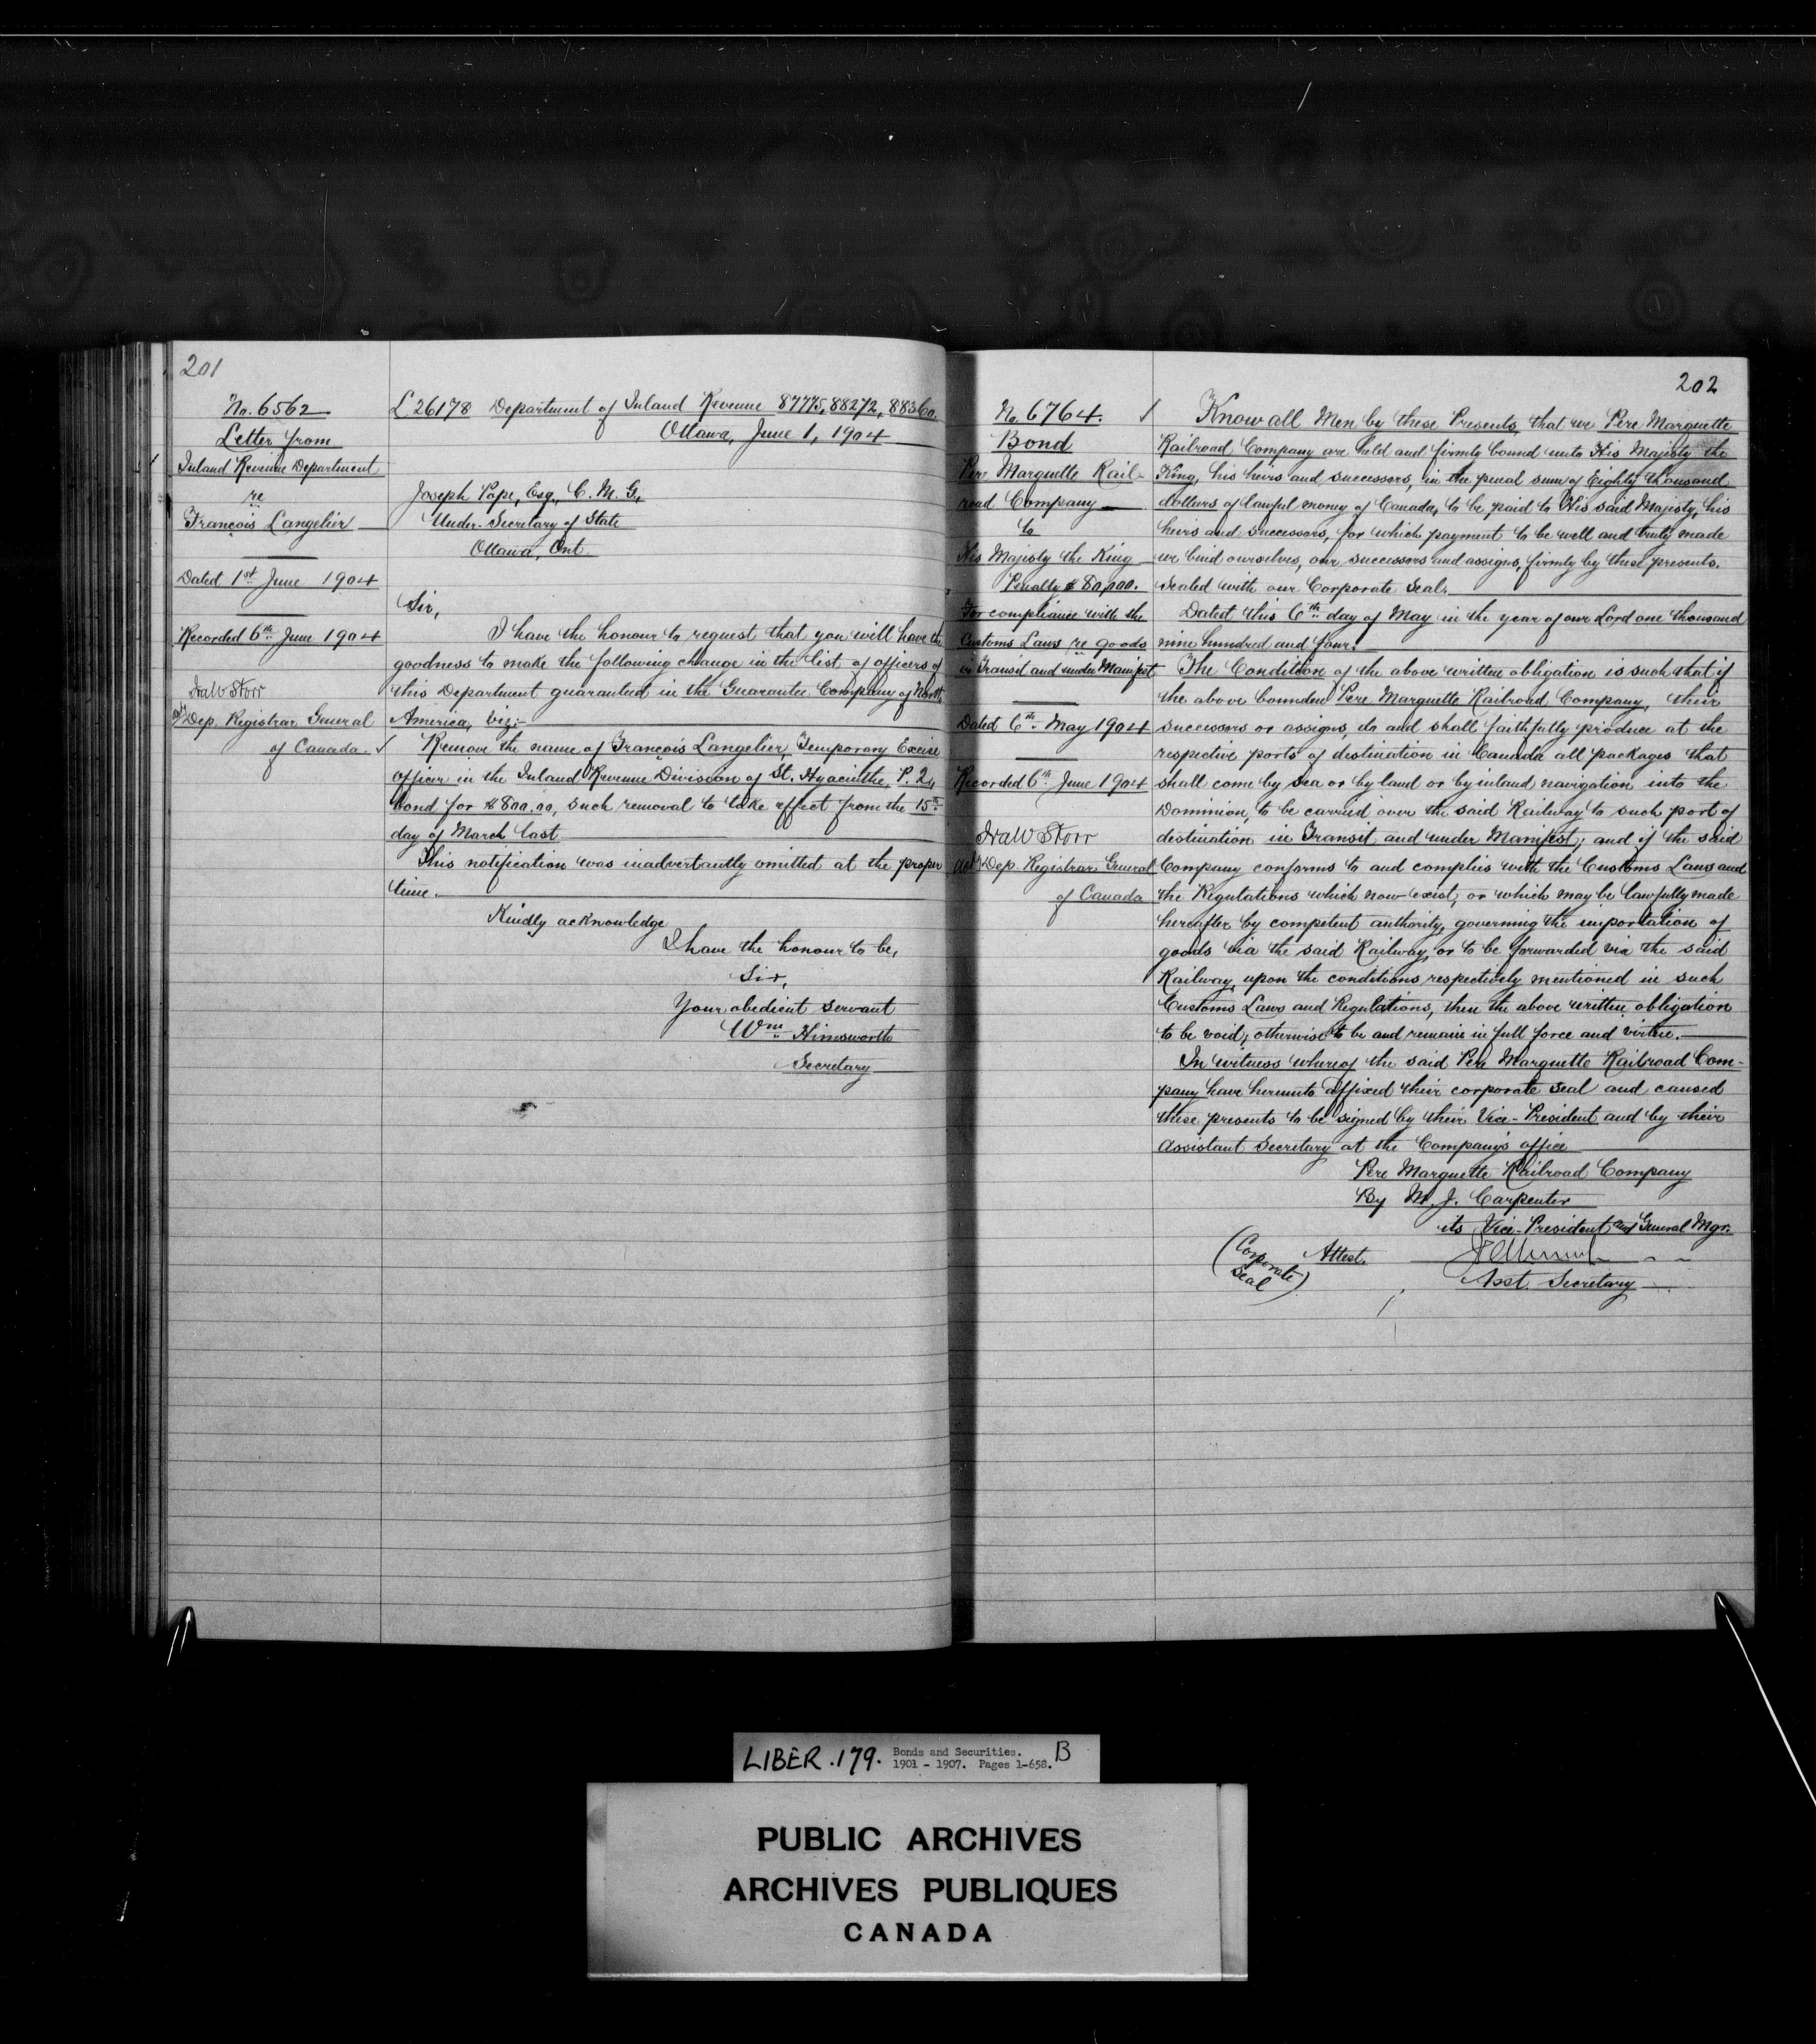 201
No. 6562
Letter from
Inland Revenue Department
re
François Langelier
Dated 1st June 1904
Recorded 6th June 1904
Ira W Storr
Dep. Registrar General
of Canada.
L 26178 Department of Inland Revenue 87775, 88272, 88360.
Ottawa, June 1, 1904
Joseph Pope, Esq., C. M. G.,
Under-Secretary of State
Ottawa, Ont
Sir,
I have the honour to request that you will have the
goodness to make the following change in the list of officers of
this Department guaranteed in the Guarantee Company of North
America, viz:-
Remove the name of François Langelier, Temporary Excise
Officer in the Inland Revenue Division of St. Hyacinthe, P. Q.,
bond for $800.00, such removal to take effect from the 15th
day of March last
This notification was inadvertantly omitted at the proper
time.
Kindly acknowledge
I have the honour to be,
Sir,
Your obedient servant
Wm Himsworth
Secretary
202
No. 6764.
Bond
Pere Marquette Rail-
road Company
to
His Majesty the King
Penalty $80,000.
For compliance with the
Customs Laws re goods
in Transit and under Manifest
Dated 6th May 1904
Recorded 6th June 1904
Ira W Storr
Dep. Registrar General
of Canada
Know all Men by these Presents, that we Pere Marquette
Railroad Company are held and firmly bound unto His Majesty the
King, his heirs and successors, in the penal sum of Eighty thousand
dollars of lawful money of Canada, to be paid to His said Majesty, his
heirs and successors, for which payment to be well and truly made
we bind ourselves, our successors and assigns, firmly by these presents.
Sealed with our Corporate Seal.
Dated this 6th day of May in the year of our Lord one thousand
nine hundred and four.
The Condition of the above written obligation is such that if
the above bounden Pere Marquette Railroad Company, their
successors or assigns, do and shall faithfully produce at the
respective ports of destination in Canada all packages that
shall come by sea or by land or by inland navigation into the
Dominion, to be carried over the said Railway to such port of
destination in Transit and under Manifest; and if the said
Company conforms to and complies with the Customs Laws and
the Regulations which now exist, or which may be lawfully made
hereafter by competent authority, governing the importation of
goods via the said Railway, or to be forwarded via the said
Railway, upon the conditions respectively mentioned in such
Customs Laws and Regulations, then the above written obligation
to be void, otherwise to be and remain in full force and virtue.
In witness whereof the said Pere Marquette Railroad Com-
pany have hereunto affixed their corporate seal and caused
these presents to be signed by their Vice-President and by their
Assistant Secretary at the Company's office
Pere Marquette Railroad Company
By M. J. Carpenter
its Vice-President and General Mgr.
(Corporate Seal)
Attest.
Asst. Secretary
LIBER .179. Bonds and Securities. B
1901 - 1907. Pages 1-658.
PUBLIC ARCHIVES
ARCHIVES PUBLIQUES
CANADA